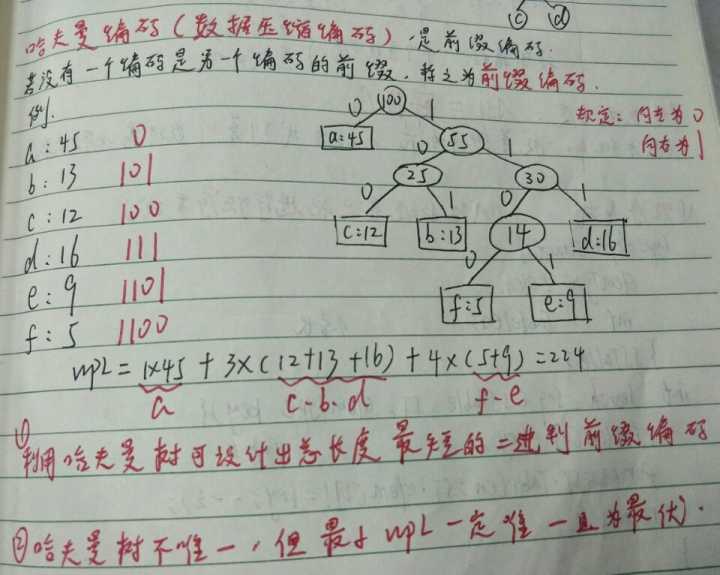 c d
哈夫曼编码(数据压缩编码),是前缀编码.
若没有一个编码是另一个编码的前缀,称之为前缀编码.
例.
规定:向左为0
向右为1
a:45 0
b:13 101
c:12 100
d:16 111
e:9 1101
f:5 1100
100
0 1
a:45 55
0 1
25 30
0 1 0 1
c:12 b:13 14 d:16
0 1
f:5 e:9
WPL=1×45+3×(12+13+16)+4×(5+9)=224
a c-b-d f-e
①利用哈夫曼树可设计出总长度最短的二进制前缀编码
②哈夫曼树不唯一,但最小WPL一定唯一且为最优).